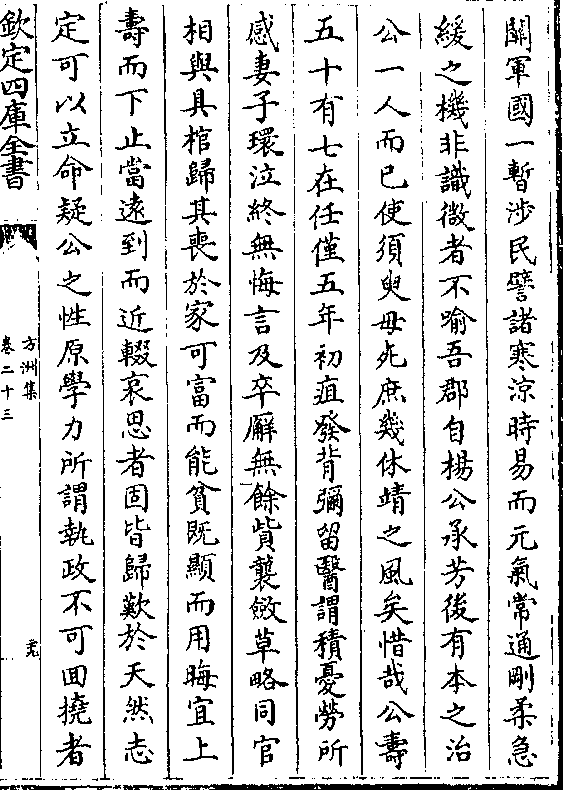 關軍國一暫涉民譬諸寒涼時易而元氣常通剛柔急
緩之機非識微者不喻吾郡自楊公承芳後有本之治
公一人而已使須臾毋死庶幾休靖之風矣惜哉公壽
五十有七在任僅五年初疽發背彌留醫謂積憂勞所
感妻子環泣終無悔言及卒廨無餘貲襲斂草略同官
相與具棺歸其喪於家可富而能貧既顯而用晦宜上
壽而下止當遠到而近輟哀思者固皆歸歎於天然志
定可以立命疑公之性原學力所謂執政不可回撓者
欽定四庫全書
方洲集
卷二十三